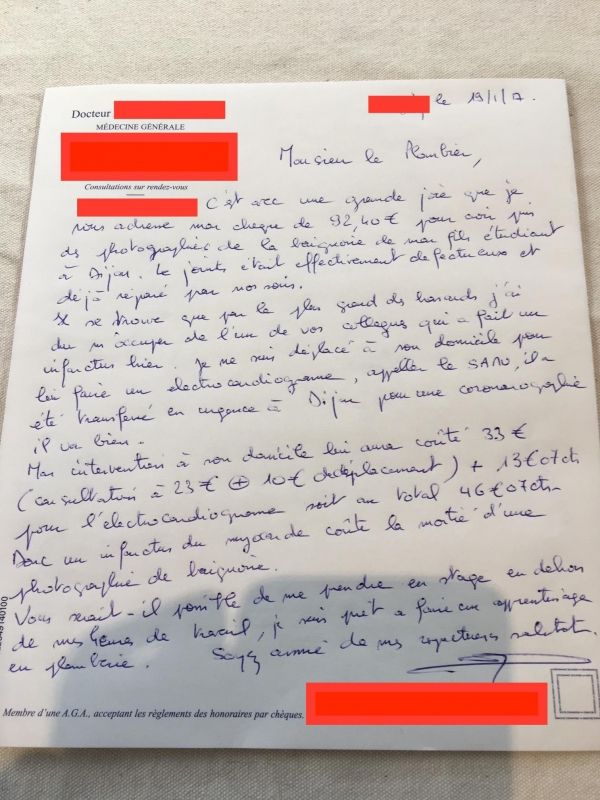 Docteur
MÉDECINE GÉNÉRALE
Consultations sur rendez-vous
le 19/1/17.
Monsieur le Plombier,
C'est avec une grande joie que je
vous adresse mon chèque de 92,40€ pour avoir pris
des photographies de la baignoire de mon fils étudiant
à Dijon. Le joints était effectivement defectueuse et
déjà réparé par nos soins.
Il se trouve que par le plus grand des hasards j'ai
du m'occuper de l'un de vos collegues qui a fait un
infarctus hier. Je me suis déplacé à son domicile pour
lui faire un electrocardiogramme, appeller le SAMU, il a
été transferré en urgence à Dijon pour une coronarographie
il va bien.
Mon intervention à son domicile lui aura coûté 33€
(consultation à 23€ ⊕ 10€ de déplacement) + 13€07cts
pour l'électrocardiogramme soit au total 46€07cts
Donc un infarctus du myocarde coûte la moitié d'une
photographie de baignoire.
Vous serait-il possible de me prendre en stage en dehors
de mes heures de travail, je suis prêt a faire un apprentissage
en plomberie. Soyez assuré de mes respectueuses salutat.
Membre d'une A.G.A., acceptant les règlements des honoraires par chèques.